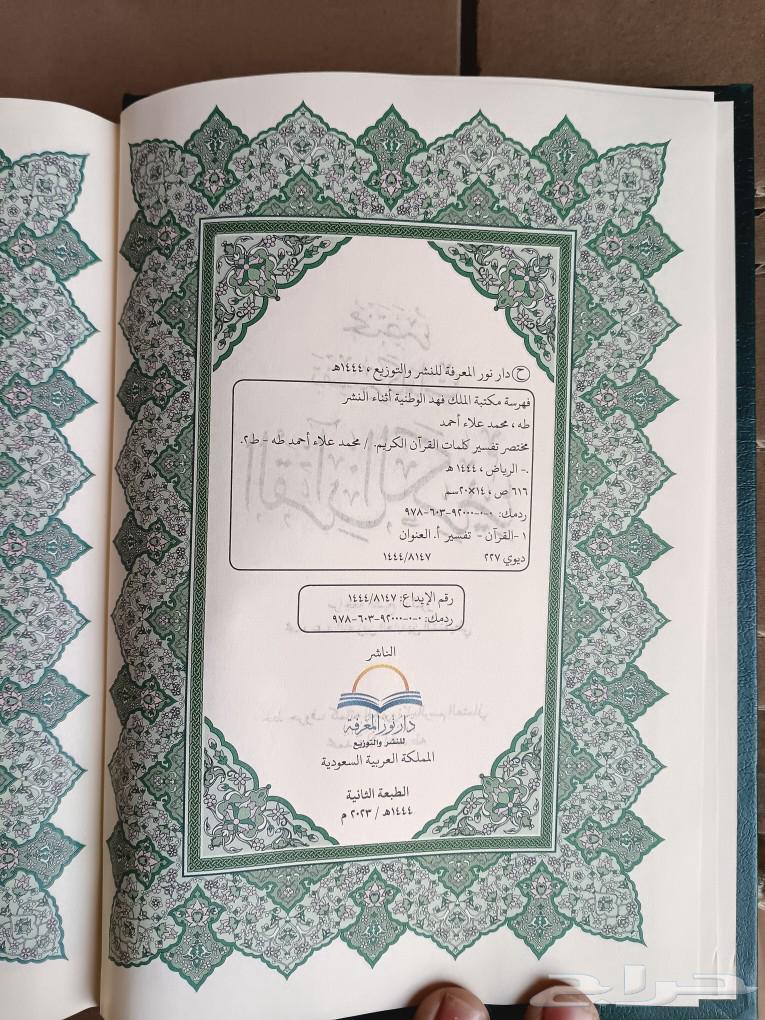 ح دار نور المعرفة للنشر والتوزيع، ١٤٤٤هـ
فهرسة مكتبة الملك فهد الوطنية أثناء النشر
طه، محمد علاء أحمد
مختصر تفسير كلمات القرآن الكريم. / محمد علاء أحمد طه - ط٢.
.- الرياض، ١٤٤٤ هـ
٦١٦ ص، ١٤×٢٠سم
ردمك: ٠-٠-٩٢٠٠٠-٦٠٣-٩٧٨
١ -القرآن - تفسير أ. العنوان
ديوي ٢٢٧ ١٤٤٤/٨١٤٧
رقم الإيداع: ١٤٤٤/٨١٤٧
ردمك: ٠-٠-٩٢٠٠٠-٦٠٣-٩٧٨
الناشر
دار نور المعرفة
للنشر والتوزيع
المملكة العربية السعودية
الطبعة الثانية
١٤٤٤هـ / ٢٠٢٣ م
حراج